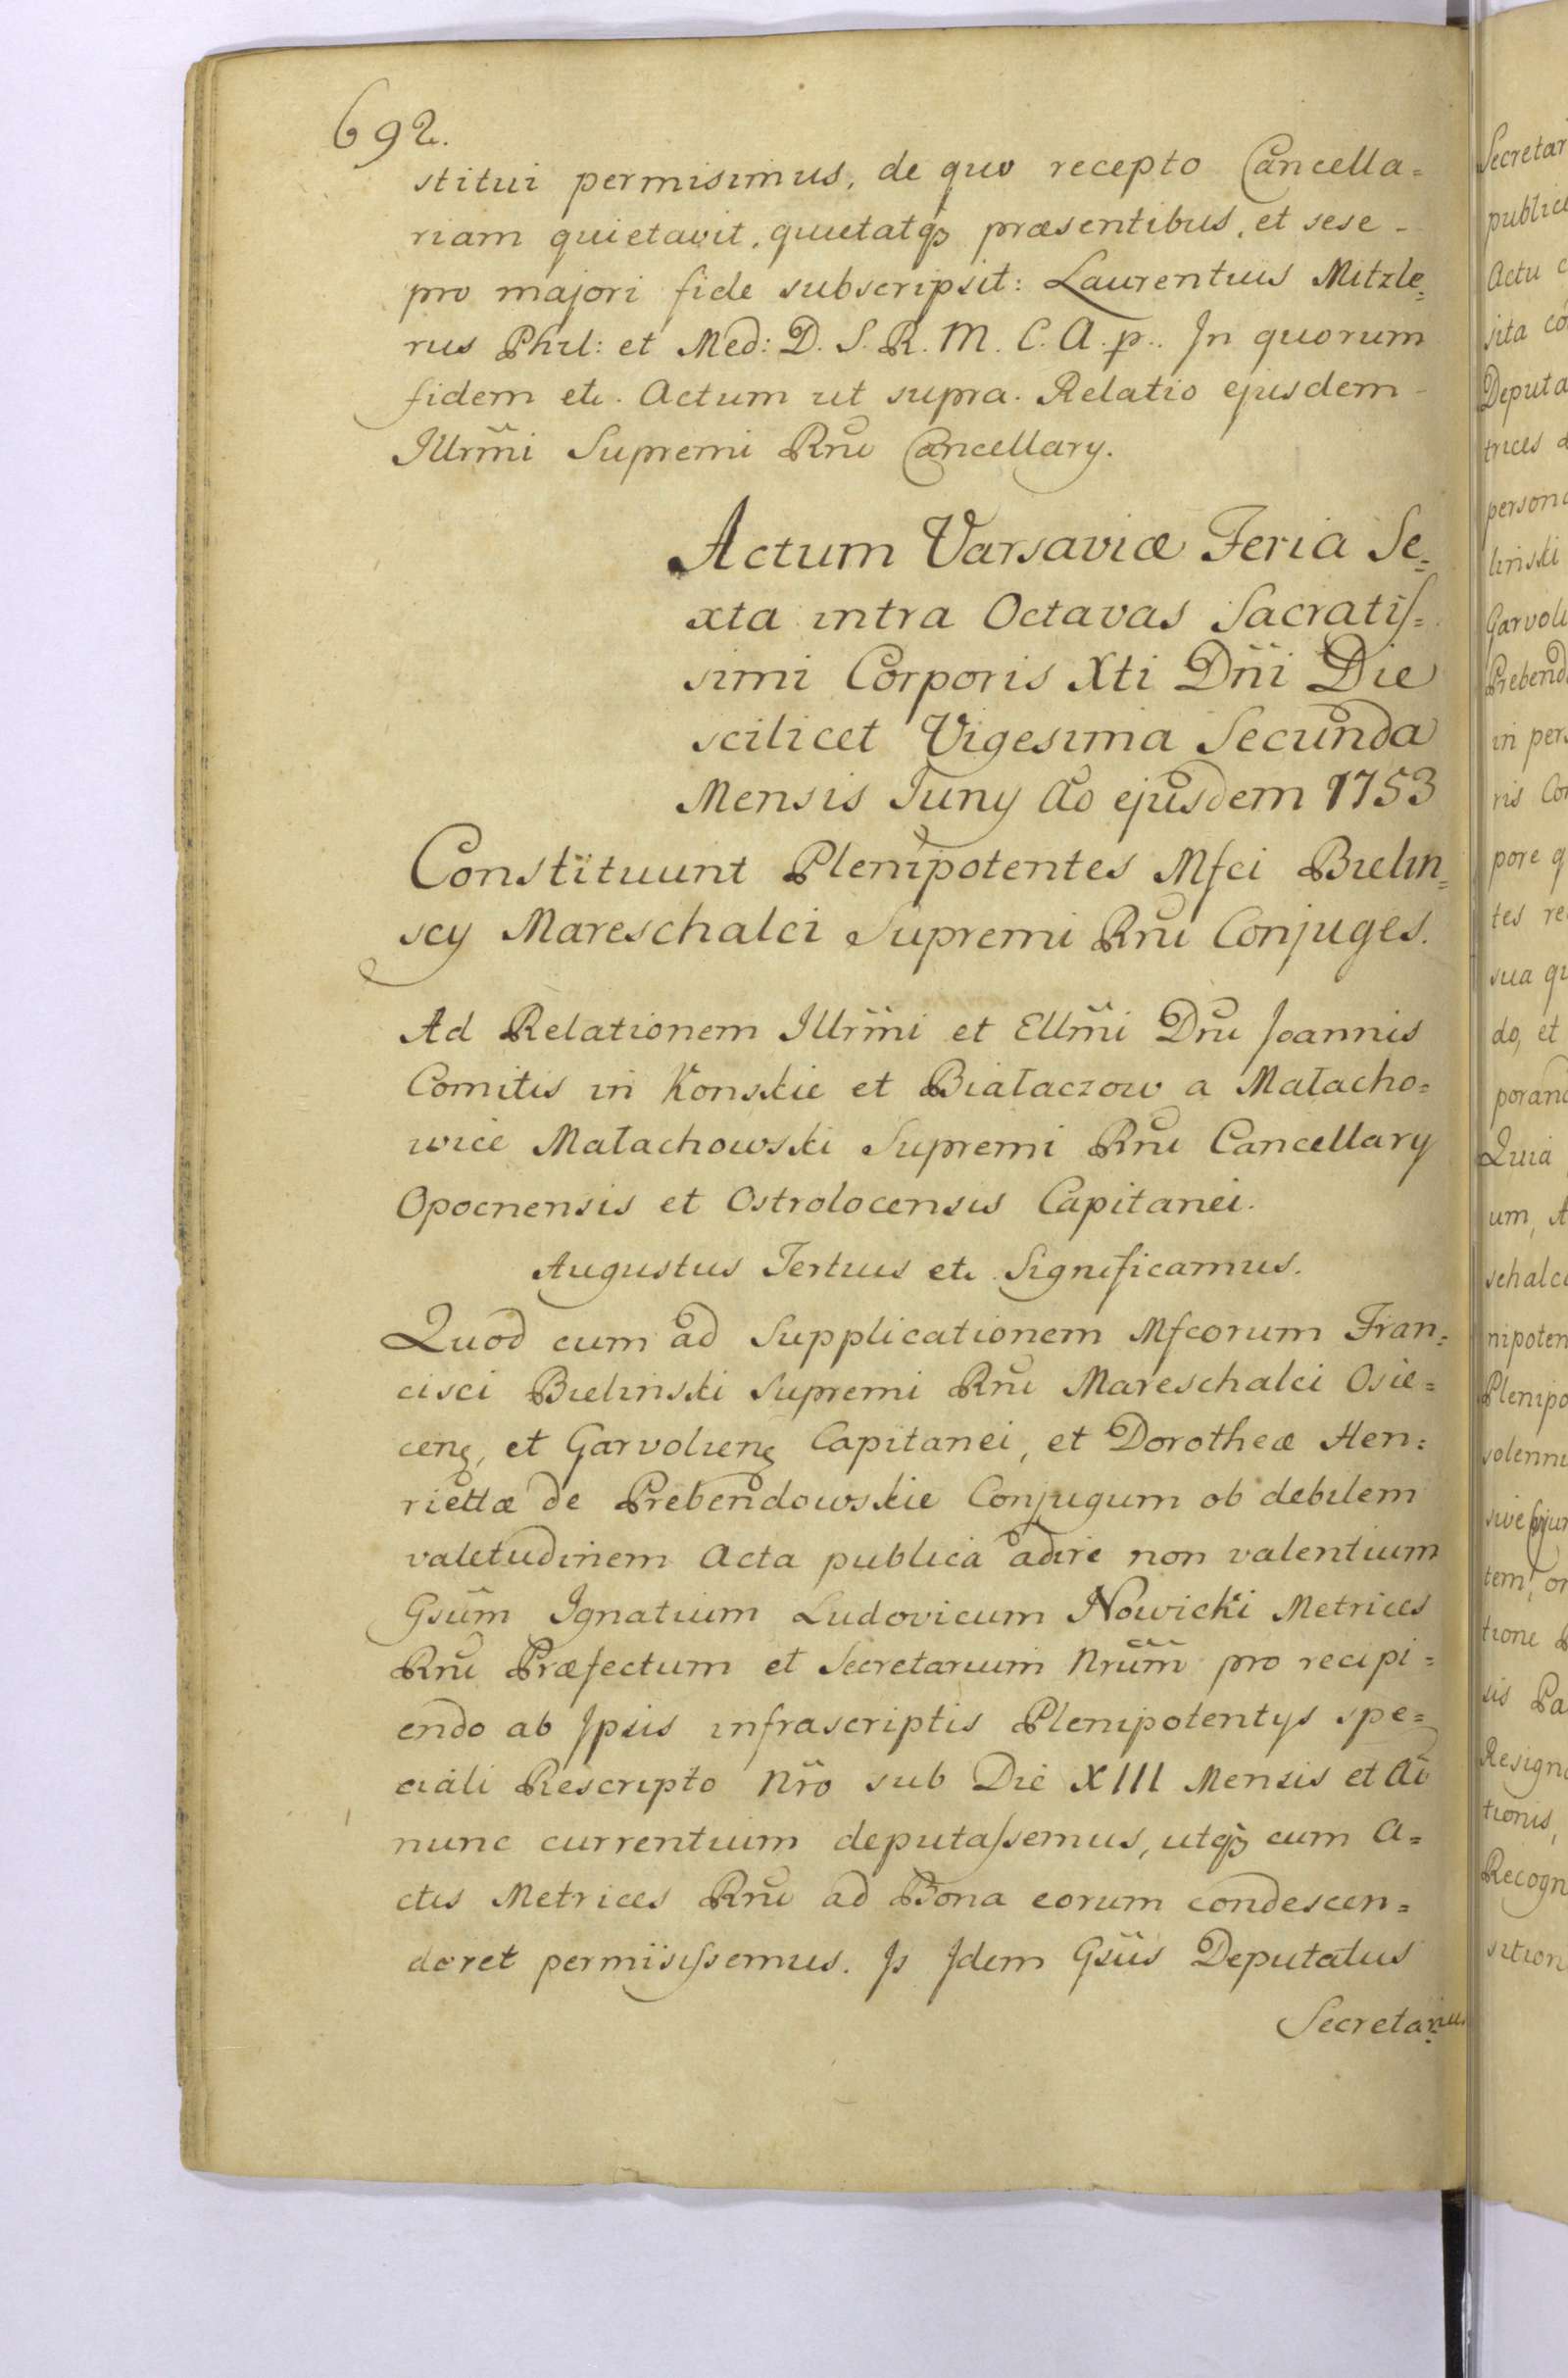 692.
stitui permisimus, de quo recepto Cancella=
riam quietavit, quietatqꝫ præsentibus, et sese -
pro majori fide subscripsit: Laurentius Mitzle=
rus Phil: et Med: D. S. R. M. C. A. p.. In quorum
fidem etc. Actum ut supra. Relatio ejusdem -
Illrm̃i Supremi Rñi Cancellary.
Actum Varsaviæ Feria Se=
xta intra Octavas Sacratis=
simi Corporis Xti Dñi Die
scilicet Vigesima Secunda
Mensis Juny Aõ ejusdem 1753
Constituunt Plenipotentes Mfci Bielin=
scy Mareschalci Supremi Rñi Conjuges.
Ad Relationem Illrm̃i et Ellm̃i Dñi Joannis
Comitis in Konskie et Białaczow a Małacho=
wice Małachowski Supremi Rñi Cancellary
Opocnensis et Ostrolocensis Capitanei.
Augustus Tertius etc. Significamus.
Quod cum ad Supplicationem Mfcorum Fran=
cisci Bielinski Supremi Rñi Mareschalci Osie=
cenꝫ, et Garvolienꝫ Capitanei, et Dorotheæ Hen=
riettæ de Prebendowskie Conjugum ob debilem
valetudinem Acta publica adire non valentium
Gsũm Ignatium Ludovicum Nowicki Metrices
Rñi Præfectum et Secretarium Nrũm pro recipi=
endo ab Ipsis infrascriptis Plenipotentys spe=
ciali Rescripto Nr̃o sub Die XIII Mensis et Ai
nunc currentium deputassemus, utqꝫ cum A=
ctis Metrices Rñi ad Bona eorum condescen=
deret permisissemus. Is Idem Gsũs Deputatus
Secretarius
Secretar
public
Actu c
sita co
Deputa
trices
person
linski
Garvoli
Prebend
in per
ris Con
pore q
tes re
sua qu
do, et
porand
Quia
um, A
schalci
nipoten
Plenipo
solenni
sive
tem, or
tione
sis Pa
Resigna
tionis,
Recogn
sition